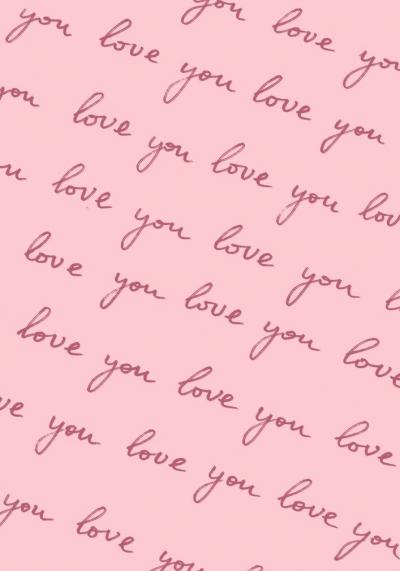 you love you
you love you love you
you love you love you lov
u love you love you
love you love you love
love you love you love
ve you love you love you
you love you